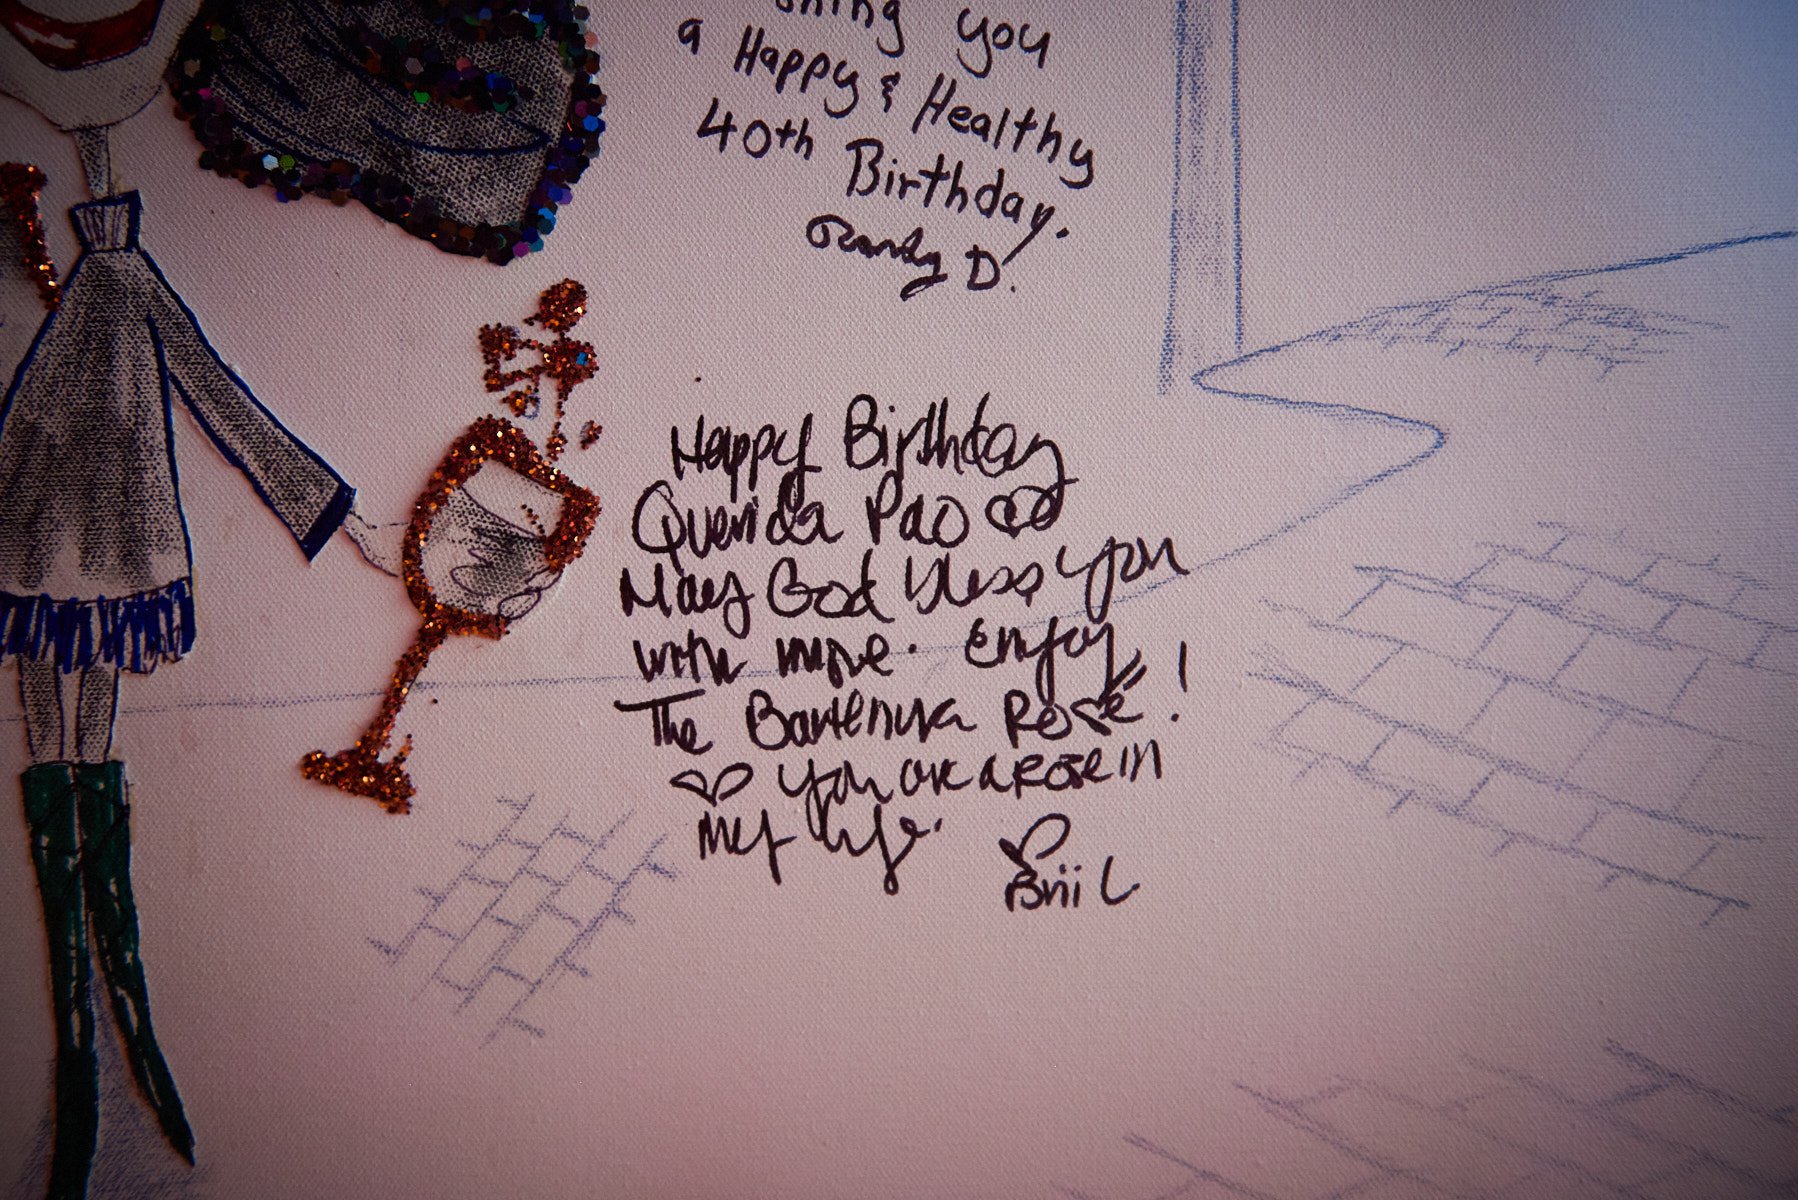 shing you
a Happy & Healthy
40th Birthday.
Randy D.
Happy Birthday
Querida Pao
May God bless you
with more. Enjoy
The Bartenura Rosé!
You are a Rose in
my life.
Brii L.